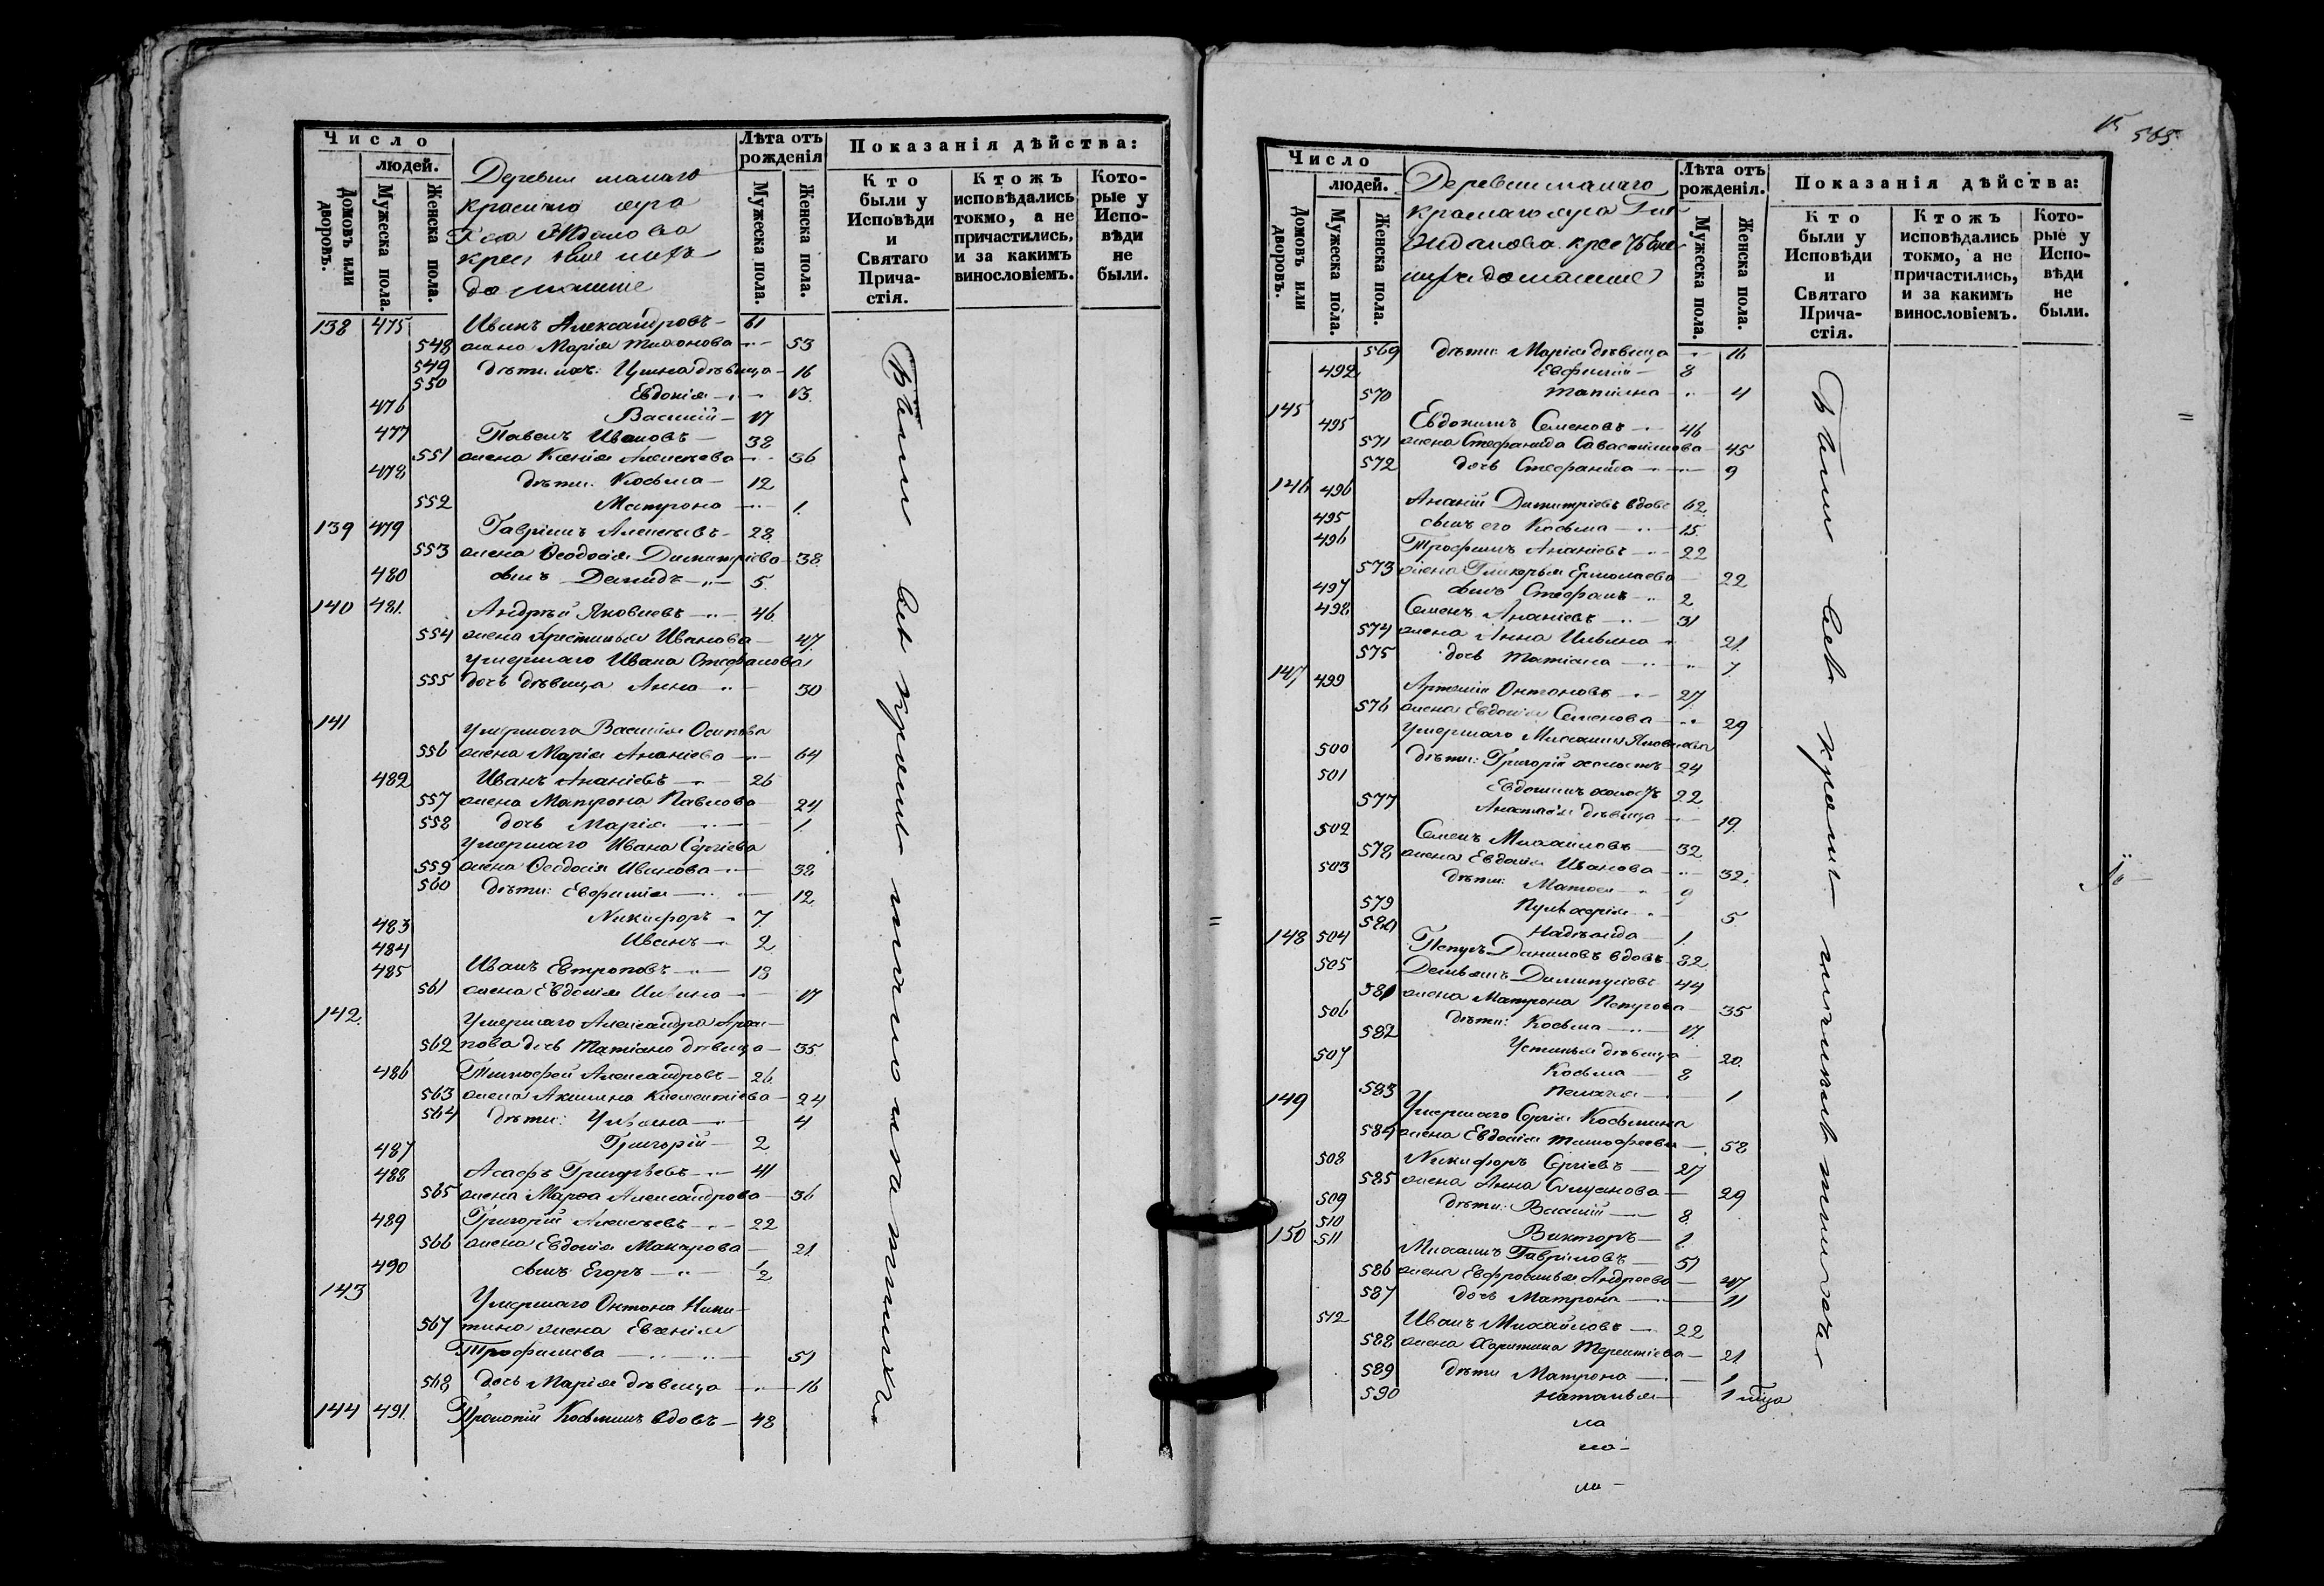 Число
людей.
Домовъ или дворовъ.
Мужеска пола.
Женска пола.
Деревни малаго
краснаго яра
Г на Жданова
крес
домашніе
Лѣта отъ
рожденія
Мужеска пола.
Женска пола.
Показанія дѣйства:
Кто
были у
Исповѣди
и
Святаго
Прича-
стія.
Ктожъ
исповѣдались
токмо, а не
причастились,
и за какимъ
винословіемъ.
Кото-
рые у
Испо-
вѣди
не
были.
138 475 Иванъ Александровъ 61
548 жена Марія Тихонова 53
549 дѣти ихъ: дѣвица 16
550 Евдокія 13
476 Василій 17
477 Павелъ Ивановъ 38
551 жена Ксенія Алексѣева 36
478 дѣти: Косьма 12
552 Матрона 1
139 479 Гавріилъ Алексѣевъ 28
553 жена Ѳеодосія Димитріева 38
480 сынъ Демидъ 5
140 481 Андрей Яковлевъ 46
554 жена Христинья Иванова 47
умершаго Ивана Стефанова
555 дочь дѣвица Анна 30
141 умершаго Василія Осипова
556 жена Марія Ананіева 64
482 Иванъ Ананіевъ 26
557 жена Матрона Павлова 24
558 дочь Марія 1
умершаго Ивана Сергіева
559 жена Ѳеодосія Иванова 38
560 дѣти: Евфимія 12
483 Никифоръ 7
484 Иванъ 2
485 Иванъ Евтроповъ 18
561 жена Евдокія Ильина 17
142 Умершаго Александра Архи-
562 пова дочь Татіана дѣвица 35
486 Тимофей Александровъ 26
563 жена Акилина Климентіева 24
564 дѣти: Ульяна 4
487 Григорій 2
488 Асафъ Григорьевъ 41
565 жена Марѳа Александрова 36
489 Григорій Алексѣевъ 22
566 жена Евдокія Макарова 21
490 сынъ Егоръ 1/2
143 Умершаго Антона Ники-
567 тина жена Евгенія
Трофимова 51
568 дочь Марія дѣвица 16
144 491 Прокопій Косьминъ вдовъ 48
Были всѣ кромѣ
15 505.
Число
людей.
Домовъ или дворовъ.
Мужеска пола.
Женска пола.
Деревни малаго
краснаго яра Г на
Жданова крес
домашніе
Лѣта отъ
рожденія.
Мужеска пола.
Женска пола.
Показанія дѣйства:
Кто
были у
Исповѣди
и
Святаго
Прича-
стія.
Ктожъ
исповѣдались
токмо, а не
причастились,
и за какимъ
винословіемъ.
Кото-
рые у
Испо-
вѣди
не
были.
569 дѣти: Марія дѣвица 16
492 Евфимій 8
570 Татіана 4
145 495 Евдокимъ Семеновъ 46
571 жена Стефанида Савастіянова 45
572 дочь Стефанида 9
146 496 Ананій Димитріевъ вдовъ 62
495 сынъ его Косьма 15
496 Трофимъ Ананіевъ 22
573 жена Гликерья Ермолаева 22
497 сынъ Стефанъ 2
498 Семенъ Ананіевъ 31
574 жена Анна Ильина 21
575 дочь Татіана 7
147 499 Артемій Онтоновъ 27
576 жена Евдокія Семенова 29
Умершаго Михаила Яковлева
500 дѣти: Григорій холостъ 24
501 Евдокимъ холостъ 22
577 Анастасія дѣвица 19
502 Семенъ Михайловъ 32
578 жена Евдокія Иванова 32
503 дѣти: Матѳей 9
579 Пульхерія 5
580 Надежда 1
148 504 Петръ Даниловъ вдовъ 32
505 Демьянъ Димитріевъ 44
581 жена Матрона Петрова 35
506 дѣти: Косьма 17
582 Устинья дѣвица 20
507 Косьма 8
583 Пелагея 1
149 Умершаго Сергія Косьмина
584 жена Евдокія Тимофеева 58
508 Никифоръ Сергіевъ 27
585 жена Анна 29
509 дѣти: Василій 8
510 Викторъ 1
150 511 Михаилъ Гавриловъ 51
586 жена Евфросинья Андреева 47
587 дочь Матрона 11
512 Иванъ Михайловъ 22
588 жена Харитина Терентіева 21
589 дѣти Матрона 1
590 Наталья 1
Были всѣ кромѣ